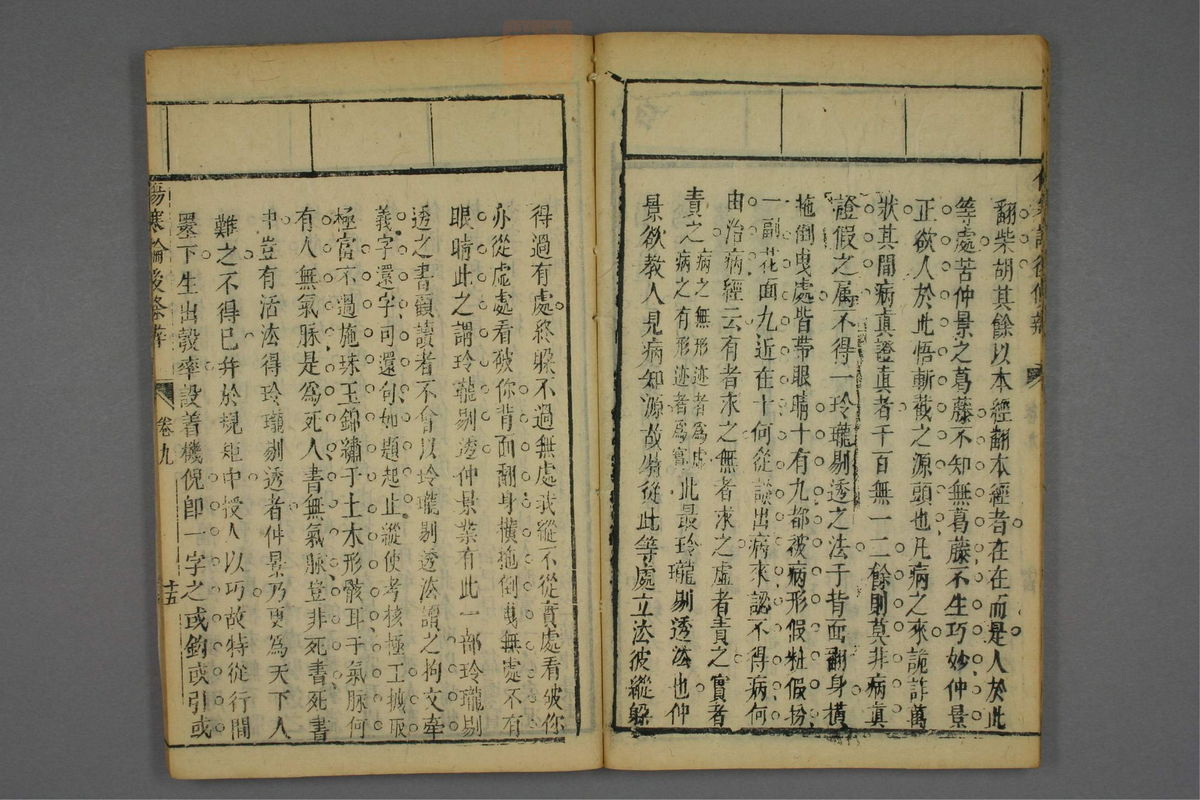 翻柴胡其餘以本經翻本經者在在而是人於此
等處苦仲景之葛藤不知無葛藤不生巧妙仲景
正欲人於此悟斬截之源頭也凡病之來詭詐萬
狀其間病真證真者千百無一二餘則莫非病真
證假之屬不得一玲瓏剔透之法于背面翻身橫
拖倒曳處皆帶眼睛十有九都被病形假粧假扮
一副花面九近在十何從談出病來認不得病何
由治病經云有者求之無者求之虛者責之實者
責之病之無形迹者為虛病之有形迹者為實此最玲瓏剔透法也仲
景欲教人見病知源故特從此等處立法彼縱躱
得過有處終躱不過無處我縱不從實處看破你
亦從虛處看破你背面翻身橫拖倒曳無處不有
眼睛此之謂玲瓏剔透仲景業有此一部玲瓏剔
透之書顧讀者不會以玲瓏剔透法讀之拘文牽
義字還字句還句如題起止縱使考核極工摭取
極富不過施珠玉錦繡于土木形骸耳于氣脉何
有人無氣脉是為死人書無氣脉豈非死書死書
中豈有活法得玲瓏剔透者仲景乃更為天下人
難之不得已并於規矩中授人以巧故特從行間
墨下生出彀率設着機倪卽一字之或鈎或引或
傷寒論後條辨
卷九
十五